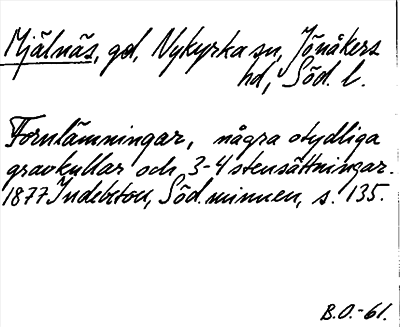 Mjälnäs, gd, Nykyrka sn, Jönåkers
hd, Söd. l.
Fornlämningar, några otydliga
gravkullar och 3-4 stensättningar.
1877 Indebetou, Söd. minnen, s. 135.
B.O.-61.